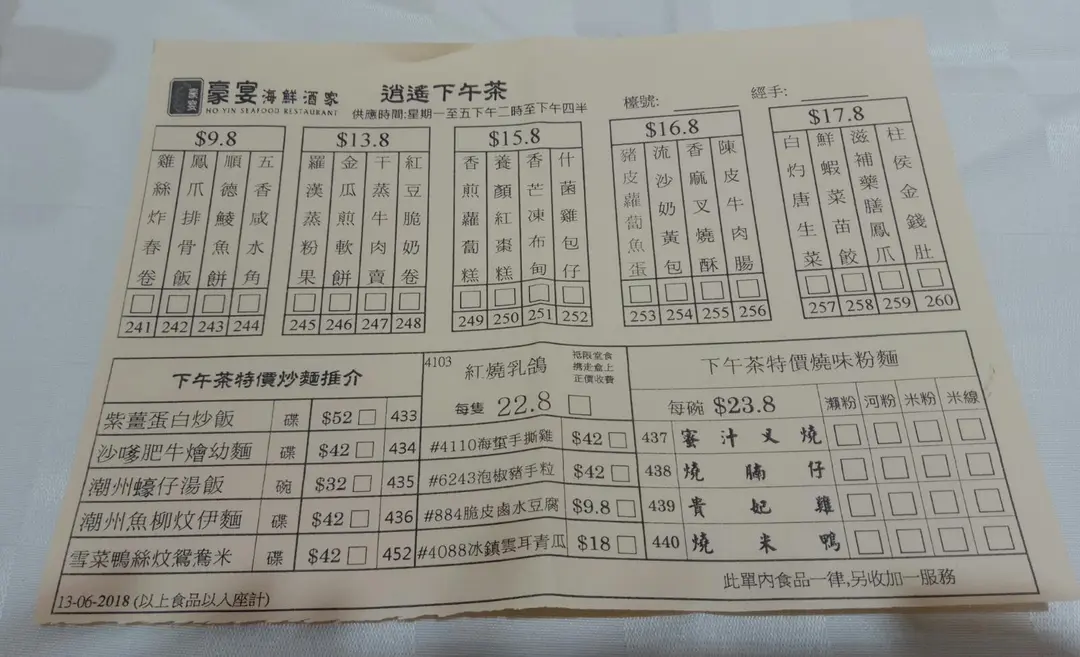 豪宴
豪宴海鮮酒家
HO YIN SEAFOOD RESTAURANT
逍遙下午茶
供應時間:星期一至五下午二時至下午四半
檯號:
經手:
$9.8
雞絲炸春卷
鳳爪排骨飯
順德鯪魚餅
五香咸水角
241 242 243 244
$13.8
羅漢蒸粉果
金瓜煎軟餅
干蒸牛肉賣
紅豆脆奶卷
245 246 247 248
$15.8
香煎蘿蔔糕
養顏紅棗糕
香芒凍布甸
什菌雞包仔
249 250 251 252
$16.8
豬皮蘿蔔魚蛋
流沙奶黃包
香麻叉燒酥
陳皮牛肉腸
253 254 255 256
$17.8
白灼唐生菜
鮮蝦菜苗餃
滋補藥膳鳳爪
柱侯金錢肚
257 258 259 260
下午茶特價炒麵推介
紫薑蛋白炒飯 碟 $52 433
沙嗲肥牛燴幼麵 碟 $42 434
潮州蠔仔湯飯 碗 $32 435
潮州魚柳炆伊麵 碟 $42 436
雪菜鴨絲炆鴛鴦米 碟 $42 452
4103 紅燒乳鴿
祗限堂食
携走盒上
正價收費
每隻 22.8
#4110海蜇手撕雞 $42
#6243泡椒豬手粒 $42
#884脆皮鹵水豆腐 $9.8
#4088冰鎮雲耳青瓜 $18
下午茶特價燒味粉麵
每碗 $23.8 瀨粉 河粉 米粉 米線
437 蜜汁叉燒
438 燒腩仔
439 貴妃雞
440 燒米鴨
此單內食品一律,另收加一服務
13-06-2018 (以上食品以入座計)